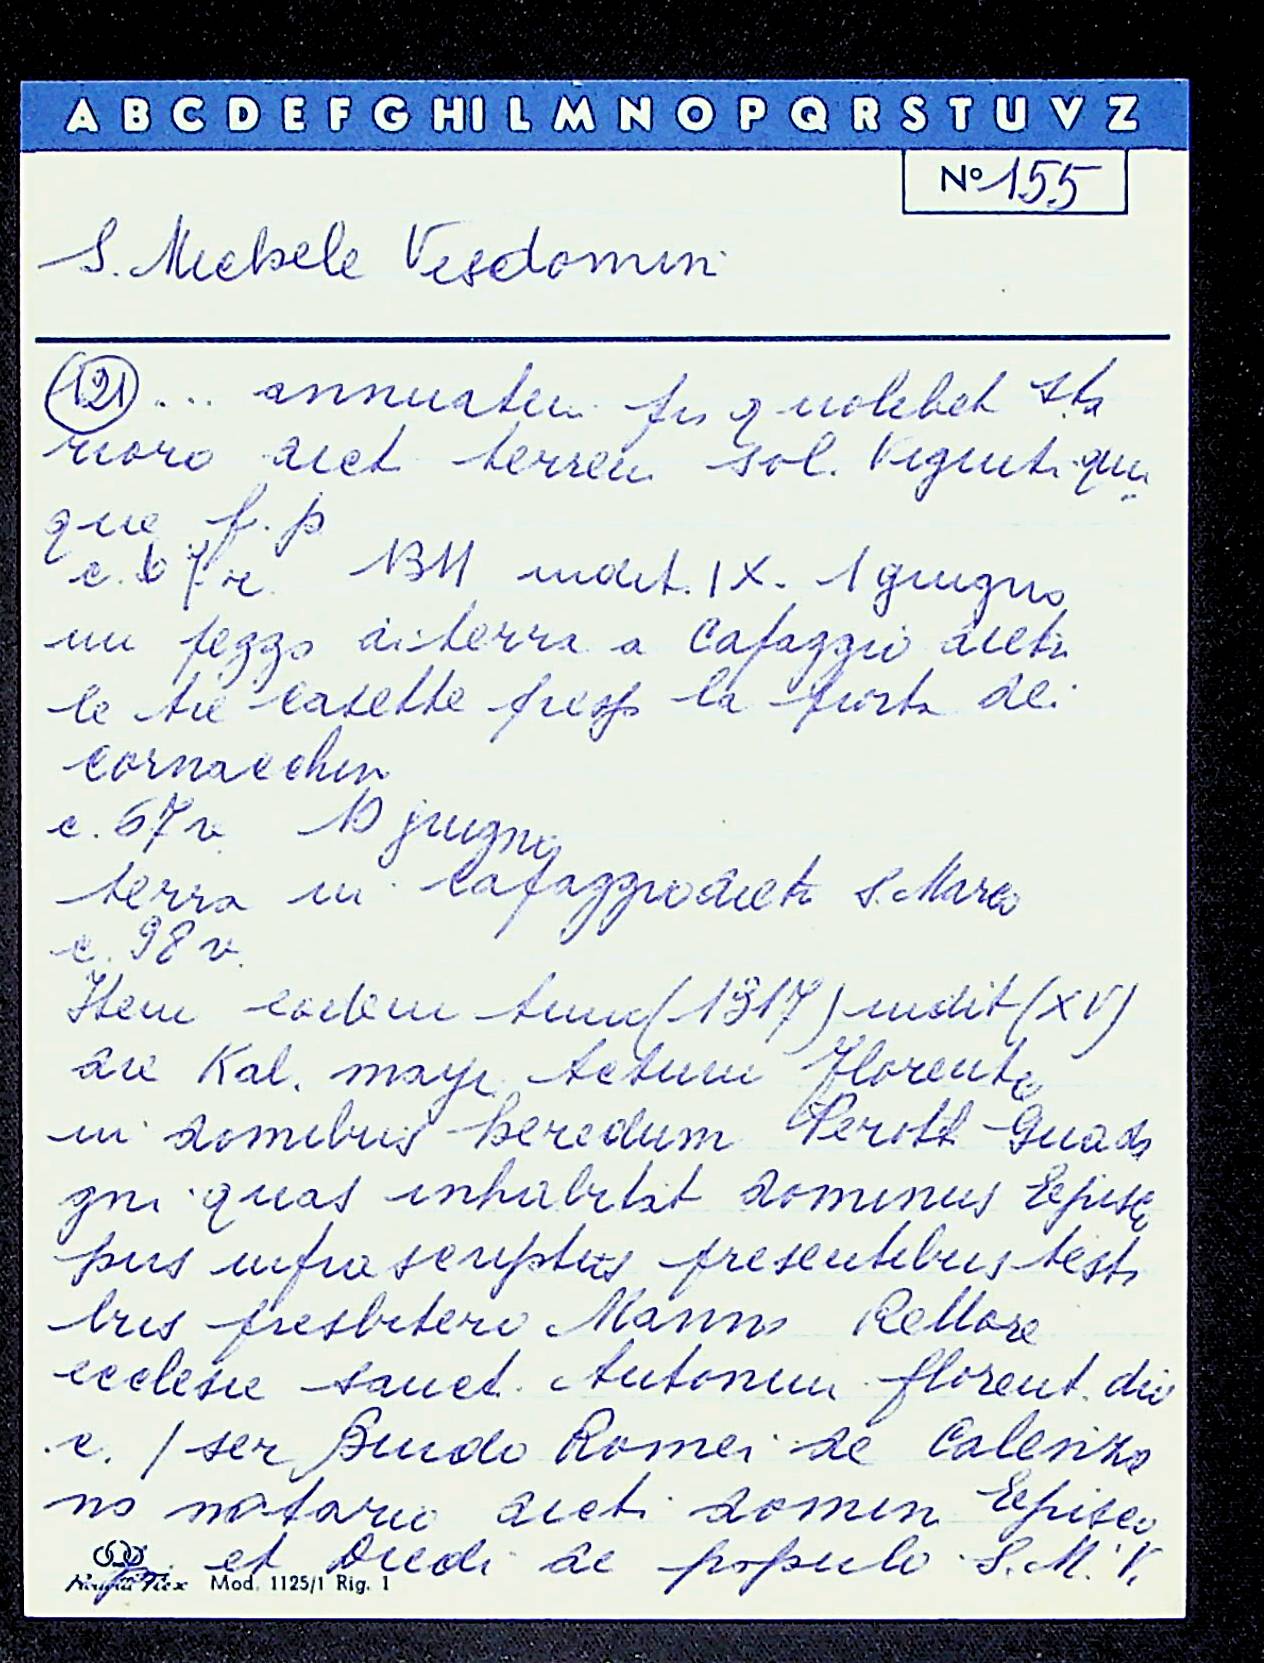 A B C D E F G H I L M N O P Q R S T U V Z
N° 155
S. Michele Visdomini
(21) ... annuatim pro quolibet sta
rioro dict. terreni sol. viginti quin
que f. p.
c. 67 r. 1311 indit. IX. 1 giugno
un pezzo di terra a Cafaggio dietro
le tre casette presso la porta dei
cornacchini
c. 67 v. 10 giugno
terra in cafaggio dietro S. Marco
c. 98 v.
Item eodem anno (1317) indit (XV)
die Kal. maji Actum Florentie
in domibus heredum Perotti Guada
gni quas inhabitat dominus Episco
pus infrascriptus presentibus testi
bus presbitero Manno Rettore
ecclesie sanct. Antonini florent. dio
c. / ser Bindo Romei de Calenza
no notario dicti domini Episcopi
et Duedi de populo S. M. V.
Mod. 1125/1 Rig. 1